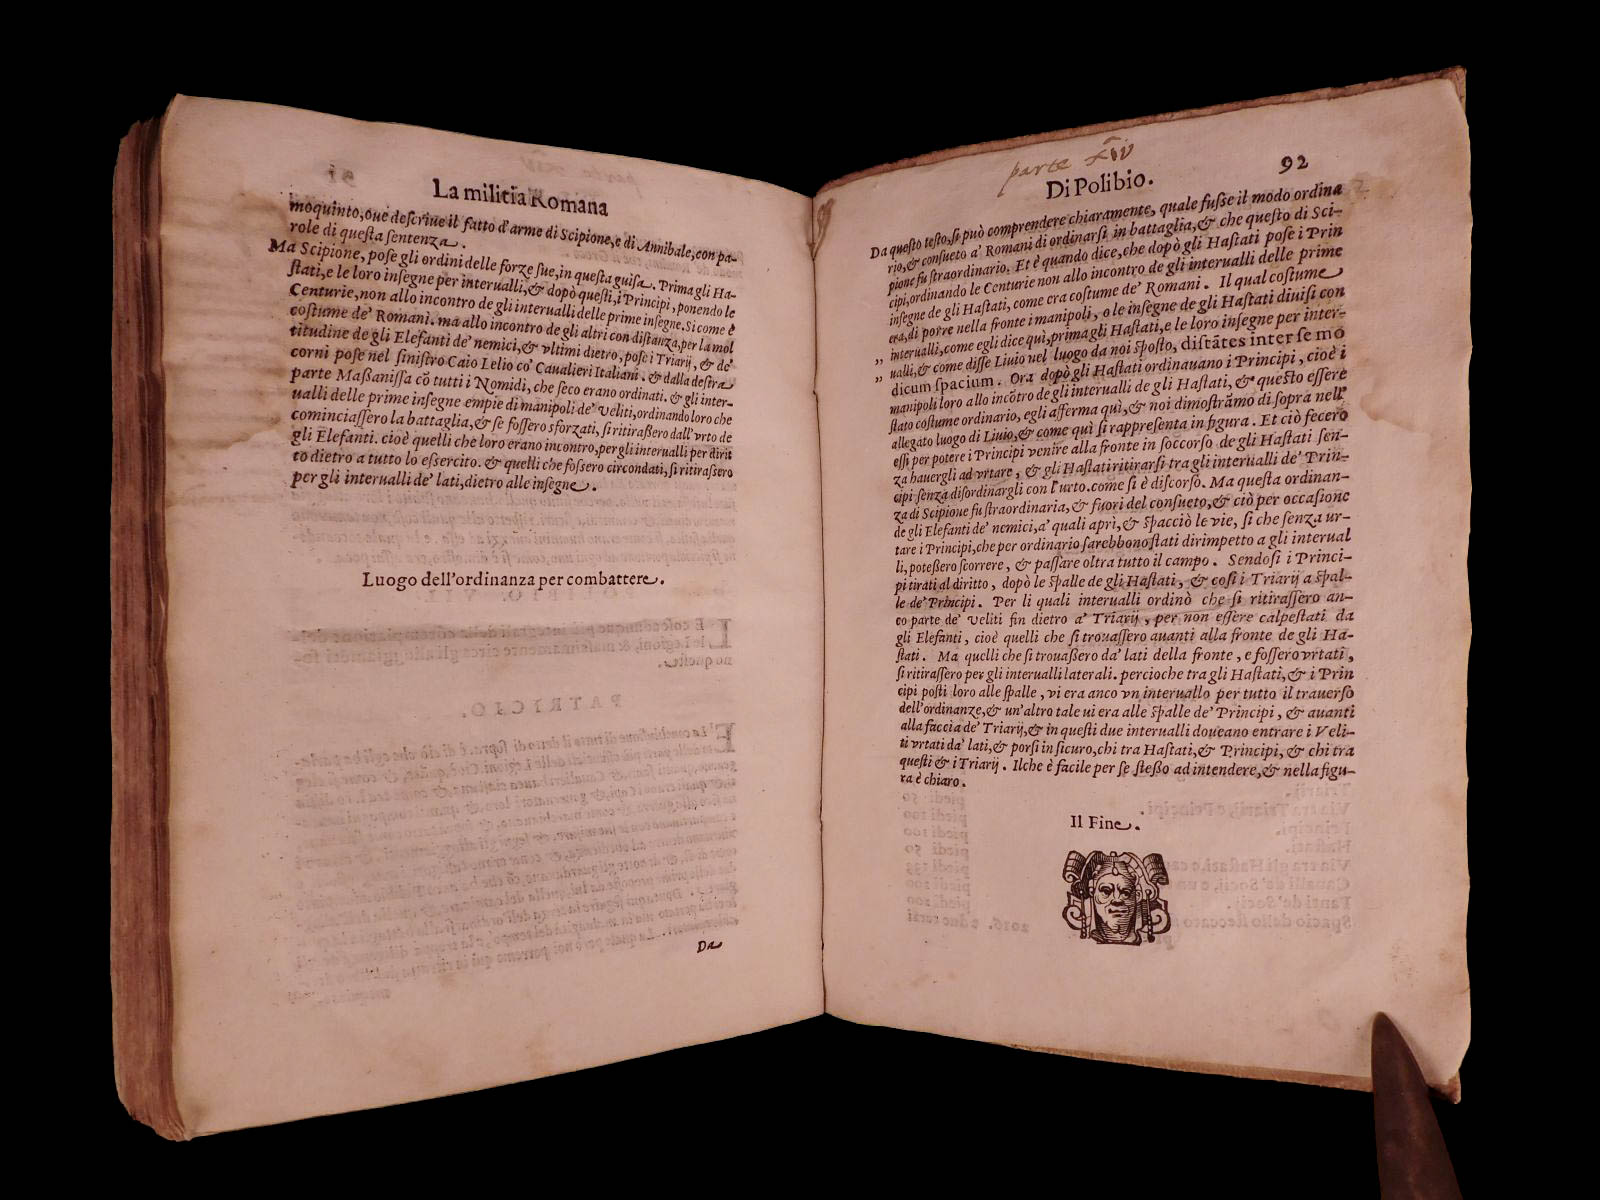 La militia Romana
moquinto, oue descriue il fatto d'arme di Scipione, e di Annibale, con pa-
role di questa sentenza.
Ma Scipione, pose gli ordini delle forze sue, in questa guisa. Prima gli Ha-
ſtati, e le loro inſegne per interualli, & dopò queſti, i Principi, ponendo le
Centurie, non allo incontro de gli interualli delle prime inſegne. Si come è
coſtume de' Romani. ma allo incontro de gli altri con diſtanza, per la mol
titudine de gli Elefanti de' nemici, & vltimi dietro, poſe i Triarij, & de'
corni poſe nel ſiniſtro Caio Lelio co' Caualieri Italiani. & dalla deſtra
parte Maſſaniſſa cõ tutti i Nomidi, che ſeco erano ordinati. & gli inter-
ualli delle prime inſegne empie di manipoli de' Veliti, ordinando loro che
cominciaſſero la battaglia, & ſe foſſero sforzati, ſi ritiraßero dall'vrto de
gli Elefanti. cioè quelli che loro erano incontro, per gli interualli per dirit
to dietro a tutto lo eſſercito. & quelli che foſſero circondati, ſi ritiraſſero
per gli interualli de' lati, dietro alle inſegne.
Luogo dell'ordinanza per combattere.
Da
parte xiv
92
Di Polibio.
Da queſto teſto, ſi può comprendere chiaramente, quale fuſſe il modo ordina
rio, & conſueto a' Romani di ordinarſi in battaglia, & che queſto di Sci-
pione fu ſtraordinario. Et è quando dice, che dopò gli Haſtati poſe i Prin
cipi, ordinando le Centurie non allo incontro de gli interualli delle prime
inſegne de gli Haſtati, come era coſtume de' Romani. Il qual coſtume
era, di porre nella fronte i manipoli, o le inſegne de gli Haſtati diuiſi con
interualli, come egli dice quì, prima gli Haſtati, e le loro inſegne per inter-
„ ualli, & come diſſe Liuio nel luogo da noi ſpoſto, diſtãtes inter ſe mo
„ dicum ſpacium. Ora dopò gli Haſtati ordinauano i Principi, cioè i
manipoli loro allo incõtro de gli interualli de gli Haſtati, & queſto eſſere
ſtato coſtume ordinario, egli afferma quì, & noi dimoſtrãmo di ſopra nell'
allegato luogo di Liuio, & come quì ſi rappreſenta in figura. Et ciò fecero
eſſi per potere i Principi venire alla fronte in ſoccorſo de gli Haſtati ſen-
za hauergli ad vrtare, & gli Haſtati ritirarſi tra gli interualli de' Prin-
cipi ſenza diſordinargli con l'urto. come ſi è diſcorſo. Ma queſta ordinan-
za di Scipione fu ſtraordinaria, & fuori del conſueto, & ciò per occaſione
de gli Elefanti de' nemici, a' quali aprì, & ſpacciò le vie, ſi che ſenza ur-
tare i Principi, che per ordinario ſarebbono ſtati dirimpetto a gli interual
li, poteßero ſcorrere, & paſſare oltra tutto il campo. Sendoſi i Princi-
pi tirati al diritto, dopò le ſpalle de gli Haſtati, & coſi i Triarij a ſpal-
le de' Principi. Per li quali interualli ordinò che ſi ritiraſſero an-
co parte de' Veliti fin dietro a' Triarij, per non eſſere calpeſtati da
gli Elefanti, cioè quelli che ſi trouaſſero auanti alla fronte de gli Ha-
ſtati. Ma quelli che ſi trouaßero da' lati della fronte, e foſſero vrtati,
ſi ritiraſſero per gli interualli laterali. percioche tra gli Haſtati, & i Prin
cipi poſti loro alle ſpalle, vi era anco vn interuallo per tutto il trauerſo
dell'ordinanze, & un'altro tale ui era alle ſpalle de' Principi, & auanti
alla faccia de' Triarij, & in queſti due interualli doueano entrare i Veli-
ti vrtati da' lati, & porſi in ſicuro, chi tra Haſtati, & Principi, & chi tra
queſti & i Triarij. Ilche è facile per ſe ſteßo ad intendere, & nella figu-
ra è chiaro.
Il Fine.